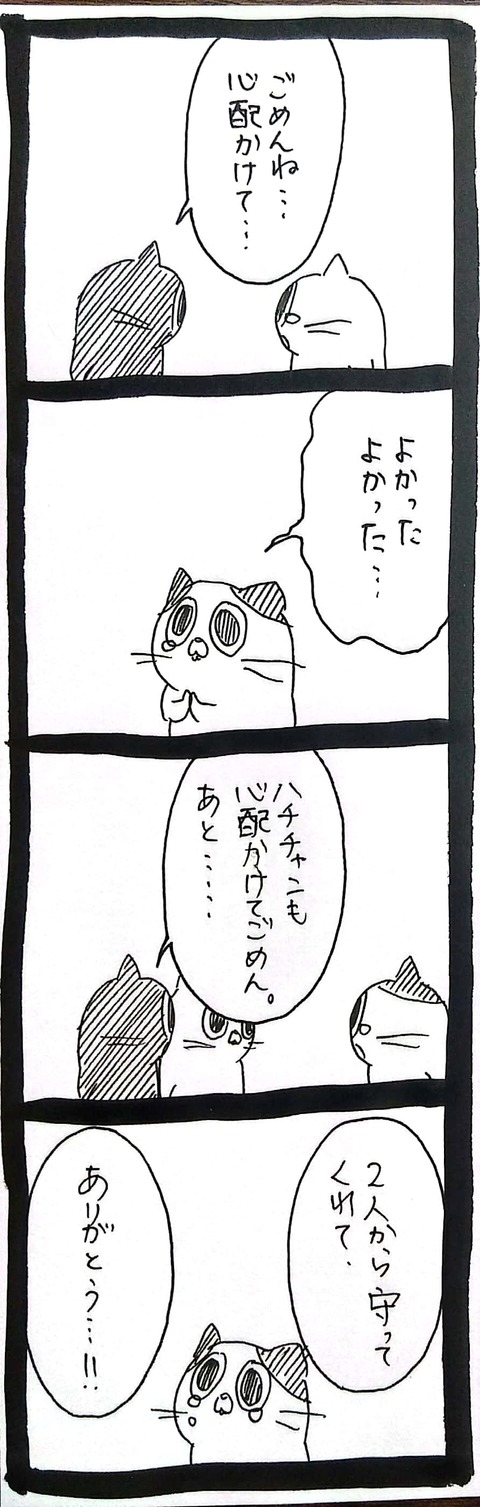 ごめんね…
心配かけて…
よかった
よかった…
ハチチャンも
心配かけてごめん。
あと……
2人から守って
くれて、
ありがとう…!!